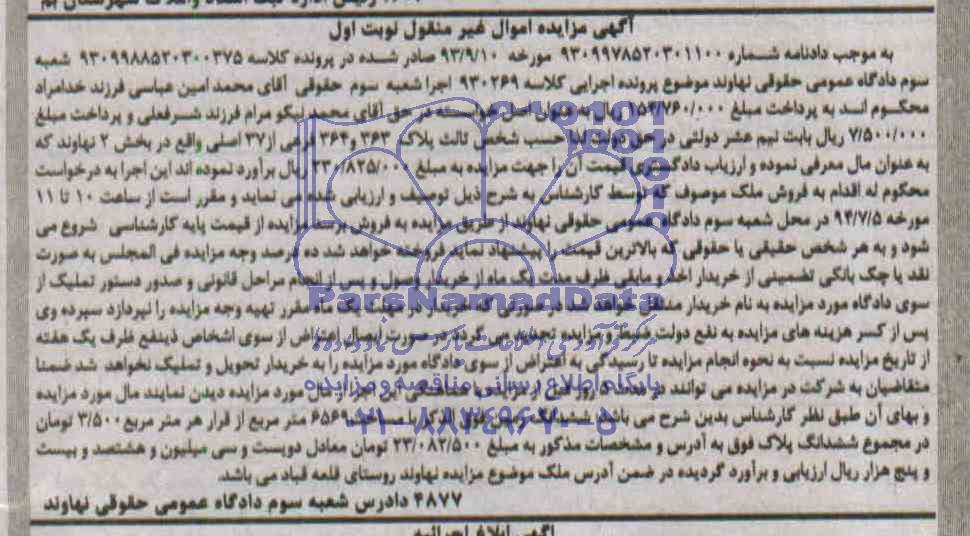 آگهی مزایده اموال غیر منقول نوبت اول
به موجب دادنامه شماره ۹۳۰۹۹۷۸۵۲۰۳۰۱۱۰۰ مورخه ۹۳/۹/۱۰ صادر شده در پرونده کلاسه ۹۳۰۹۹۸۸۵۲۰۳۰۰۳۷۵ شعبه
سوم دادگاه عمومی حقوقی نهاوند موضوع پرونده اجرایی کلاسه ۹۳۰۲۶۹ اجرا شعبه سوم حقوقی آقای محمد امین عباسی فرزند خدامراد
محکوم اند به پرداخت مبلغ ریال به عنوان اصل خواسته در حق آقای محمد نیکو مرام فرزند شرفعلی و پرداخت مبلغ
۷/۵۰۰/۰۰۰ ریال بابت نیم عشر دولتی در حق دولت لذا حسب شخص ثالث پلاک ۳۶۳ و ۳۶۴ فرعی از ۳۷ اصلی واقع در بخش ۲ نهاوند که
به عنوان مال معرفی نموده و ارزیاب دادگستری قیمت آن را جهت مزایده به مبلغ ۲۳۰/۸۲۵/۰۰۰ ریال برآورد نموده اند این اجرا به درخواست
محکوم له اقدام به فروش ملک موصوف که توسط کارشناس به شرح ذیل توصیف و ارزیابی شده می نماید و مقرر است از ساعت ۱۰ تا ۱۱
مورخه ۹۴/۷/۵ در محل شعبه سوم دادگاه عمومی حقوقی نهاوند از طریق مزایده به فروش برسد مزایده از قیمت پایه کارشناسی شروع می
شود و به هر شخص حقیقی یا حقوقی که بالاترین قیمت را پیشنهاد نماید فروخته خواهد شد ده درصد وجه مزایده فی المجلس به صورت
نقد یا چک بانکی تضمینی از خریدار اخذ و مابقی ظرف مدت یک ماه از خریدار وصول و پس از انجام مراحل قانونی و صدور دستور تملیک از
سوی دادگاه مورد مزایده به نام خریدار منتقل خواهد شد در صورتی که خریدار در مهلت یک ماه مقرر تهیه وجه مزایده را نپردازد سپرده وی
پس از کسر هزینه های مزایده به نفع دولت ضبط و مزایده تجدید می گردد در صورت وصول اعتراض از سوی اشخاص ذینفع ظرف یک هفته
از تاریخ مزایده نسبت به نحوه انجام مزایده تا رسیدگی به اعتراض از سوی دادگاه مورد مزایده را به خریدار تحویل و تملیک نخواهد شد ضمنا
متقاضیان به شرکت در مزایده می توانند در مدت ۵ روز قبل از مزایده با هماهنگی این اجرا از مال مورد مزایده دیدن نمایند مال مورد مزایده
و بهای آن طبق نظر کارشناس بدین شرح می باشد ششدانگ زمین فوق الذکر با مساحت ۶۵۶۹ متر مربع از قرار هر متر مربع ۳/۵۰۰ تومان
در مجموع ششدانگ پلاک فوق به آدرس و مشخصات مذکور به مبلغ ۲۳/۰۸۲/۵۰۰ تومان معادل دویست و سی میلیون و هشتصد و بیست
و پنج هزار ریال ارزیابی و برآورد گردیده در ضمن آدرس ملک موضوع مزایده نهاوند روستای قلعه قباد می باشد.
۴۸۷۷ دادرس شعبه سوم دادگاه عمومی حقوقی نهاوند
آگهی ابلاغ اجرائیه
ParsNamadData
پایگاه اطلاع رسانی مناقصه و مزایده
۰۲۱-۸۸۳۴۹۶۷۰-۵